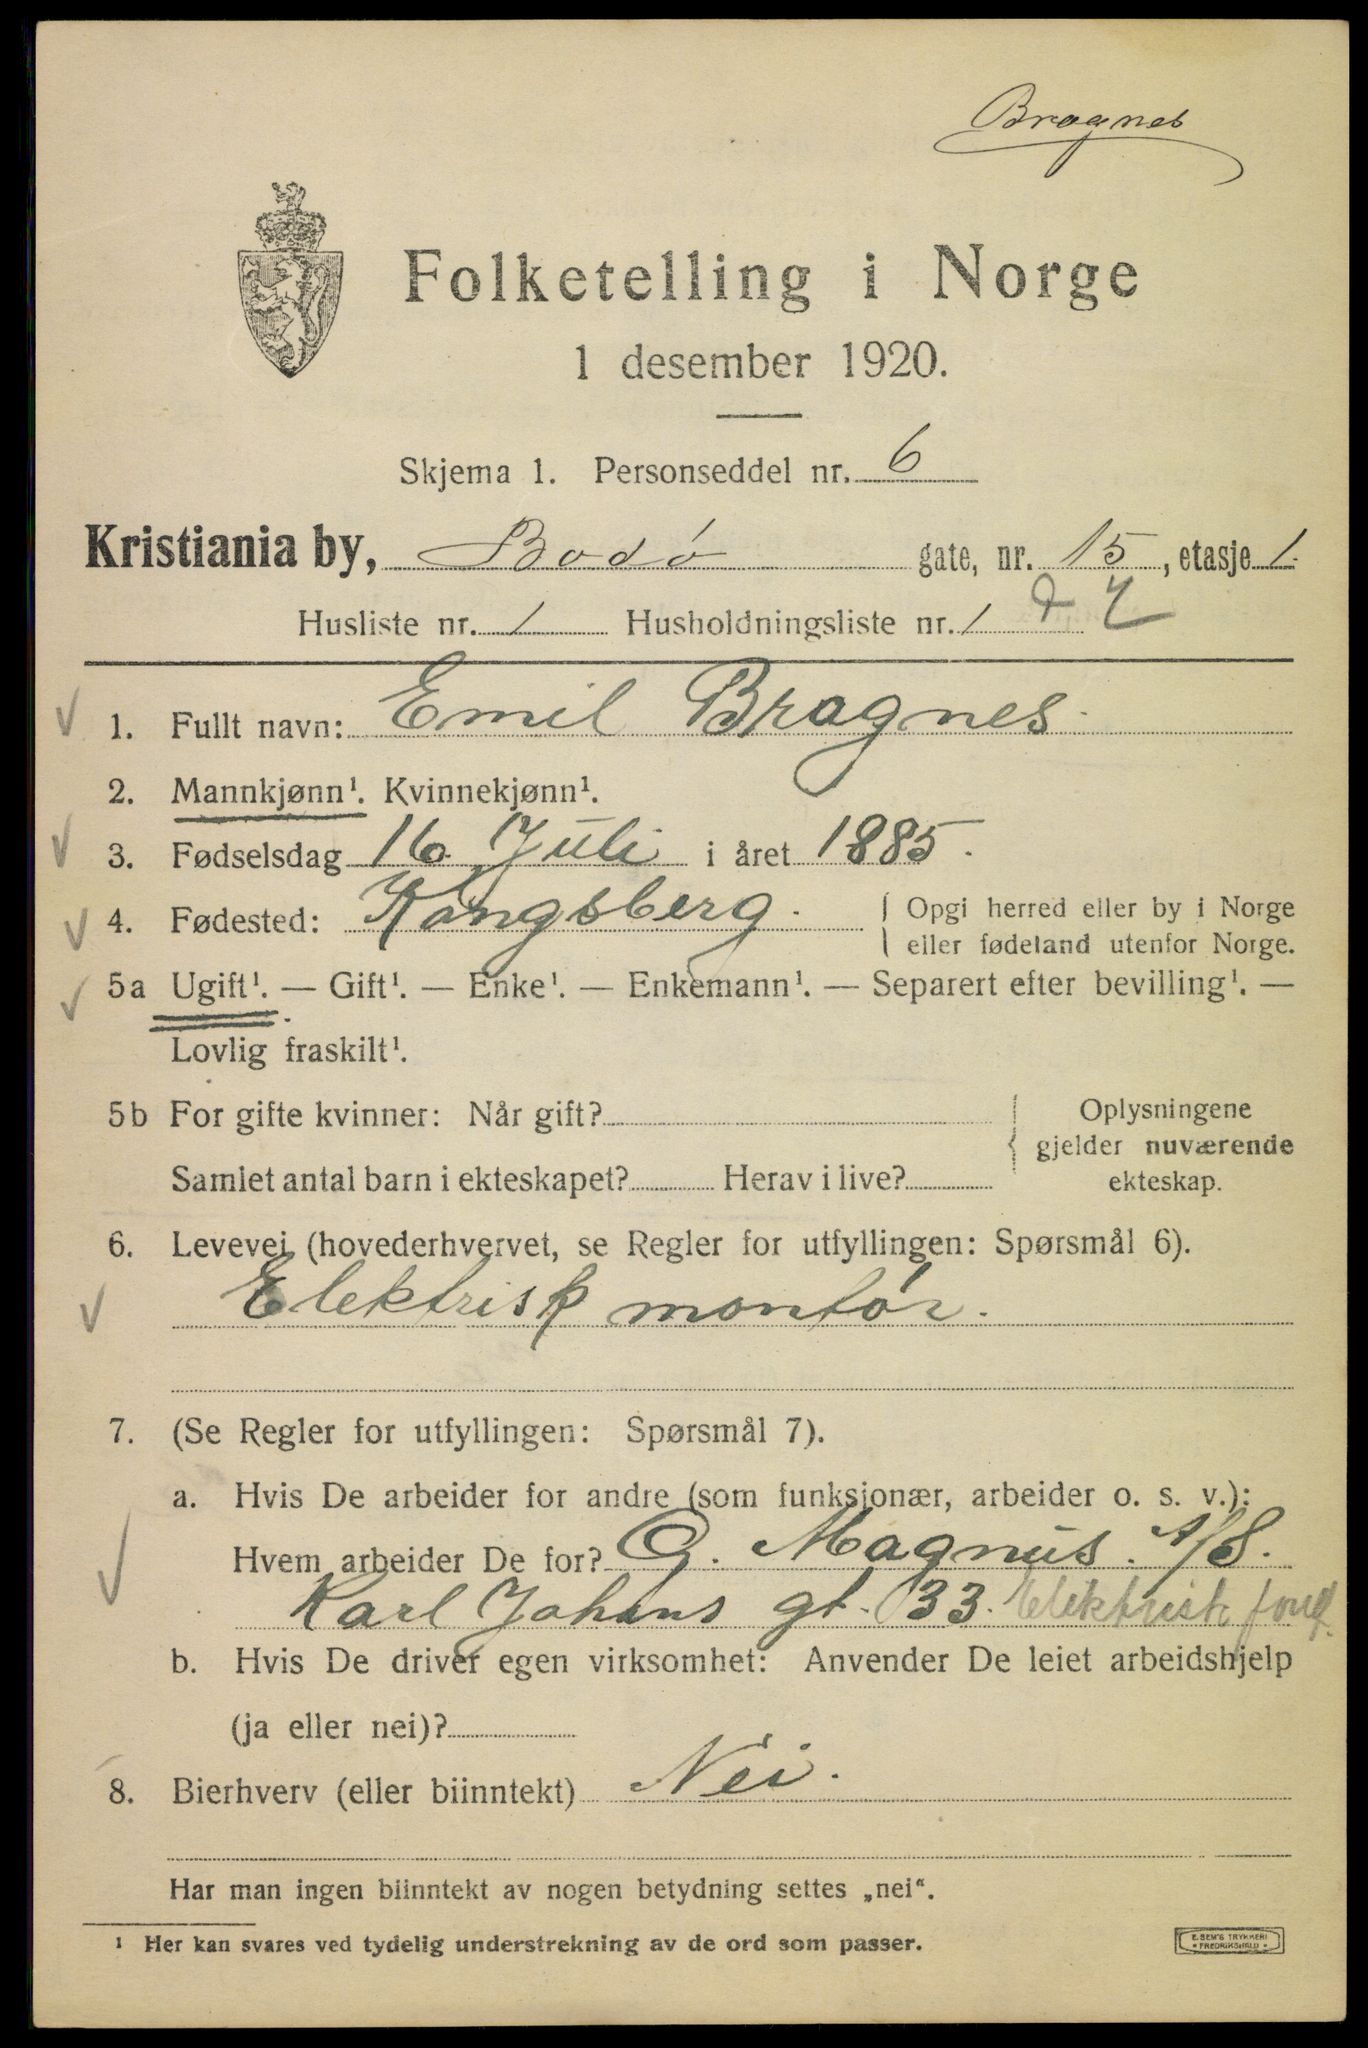 Bragnes
Folketelling i Norge
1 desember 1920.
Skjema 1. Personseddel nr. 6
Kristiania by, Bodø gate, nr. 15, etasje 1.
Husliste nr. 1 Husholdningsliste nr. 1
1. Fullt navn: Emil Bragnes.
2. Mannkjønn¹. Kvinnekjønn¹.
3. Fødselsdag 16. Juli i året 1885.
4. Fødested: Kongsberg. { Opgi herred eller by i Norge
eller fødeland utenfor Norge.
5a Ugift¹. — Gift¹. — Enke¹. — Enkemann¹. — Separert efter bevilling¹. —
Lovlig fraskilt¹.
5b For gifte kvinner: Når gift? { Oplysningene
gjelder nuværende
Samlet antal barn i ekteskapet? Herav i live? ekteskap.
6. Levevei (hovederhvervet, se Regler for utfyllingen: Spørsmål 6).
Elektrisk montör.
7. (Se Regler for utfyllingen: Spørsmål 7).
a. Hvis De arbeider for andre (som funksjonær, arbeider o. s. v.):
Hvem arbeider De for? G. Magnus. A/S.
Karl Johans gt. 33. Elektrisk
b. Hvis De driver egen virksomhet: Anvender De leiet arbeidshjelp
(ja eller nei)?
8. Bierhverv (eller biinntekt) Nei.
Har man ingen biinntekt av nogen betydning settes „nei“.
¹ Her kan svares ved tydelig understrekning av de ord som passer.
E. SEM'S TRYKKERI
• FREDRIKSHALD •